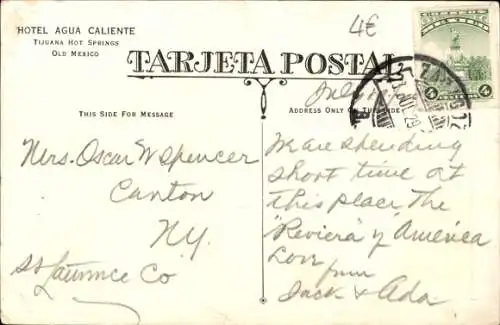 HOTEL AGUA CALIENTE
TIJUANA HOT SPRINGS
OLD MEXICO
4€
TARJETA POSTAL
THIS SIDE FOR MESSAGE
ADDRESS ONLY ON THIS SIDE
July
Mrs. Oscar W Spencer
Canton
N.Y.
St Lawrence Co
We are spending
short time at
this place The
"Reviera" of America
Love
from
Jack & Ada
4
4
29